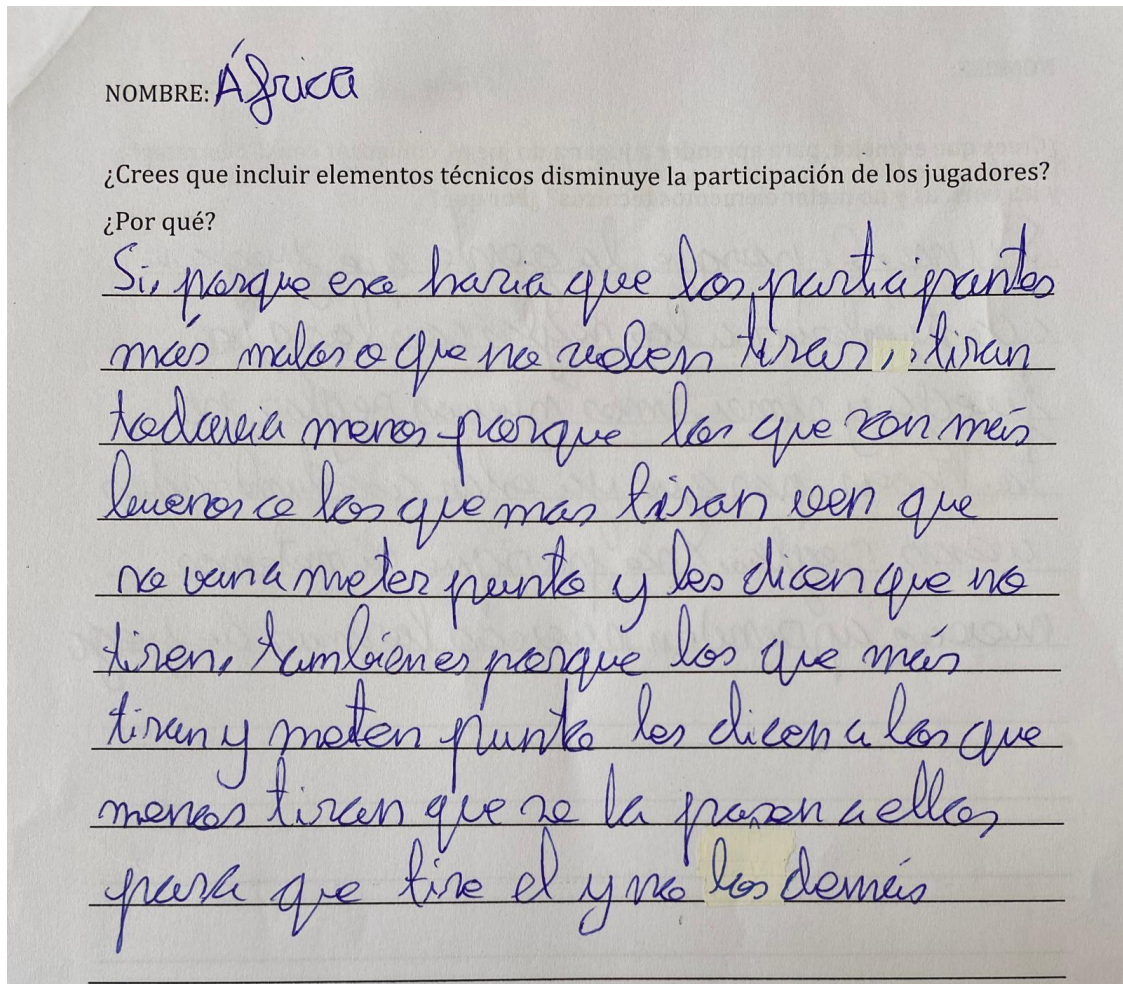 NOMBRE: África
¿Crees que incluir elementos técnicos disminuye la participación de los jugadores?
¿Por qué?
Si, porque eso haria que los participantes
más malos o que no suelen tirar, tiran
todavia menos porque los que son más
buenos o los que mas tiran ven que
no van a meter punto y les dicen que no
tiren, también es porque los que más
tiran y meten punto les dicen a los que
menos tiran que se la pasen a ellos
para que tire el y no los demás